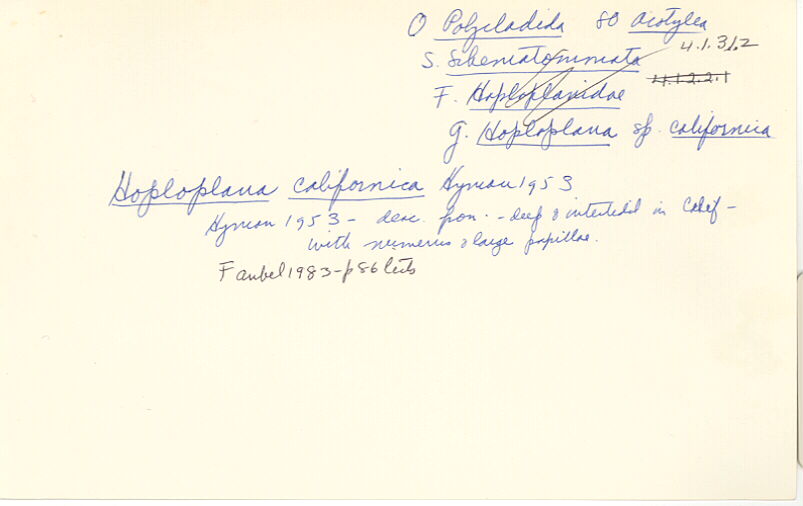 O Polycladida SO Acotylea
S. Schematommata 4.1.31.2
F. Hoploplanidae 4.1.2.2.1
G. Hoploplana sp. californica
Hoploplana californica Hyman 1953
Hyman 1953 - desc. from - deep & intertidal in Calif -
with numerous & large papillae.
Faubel 1983 - p 86 lists